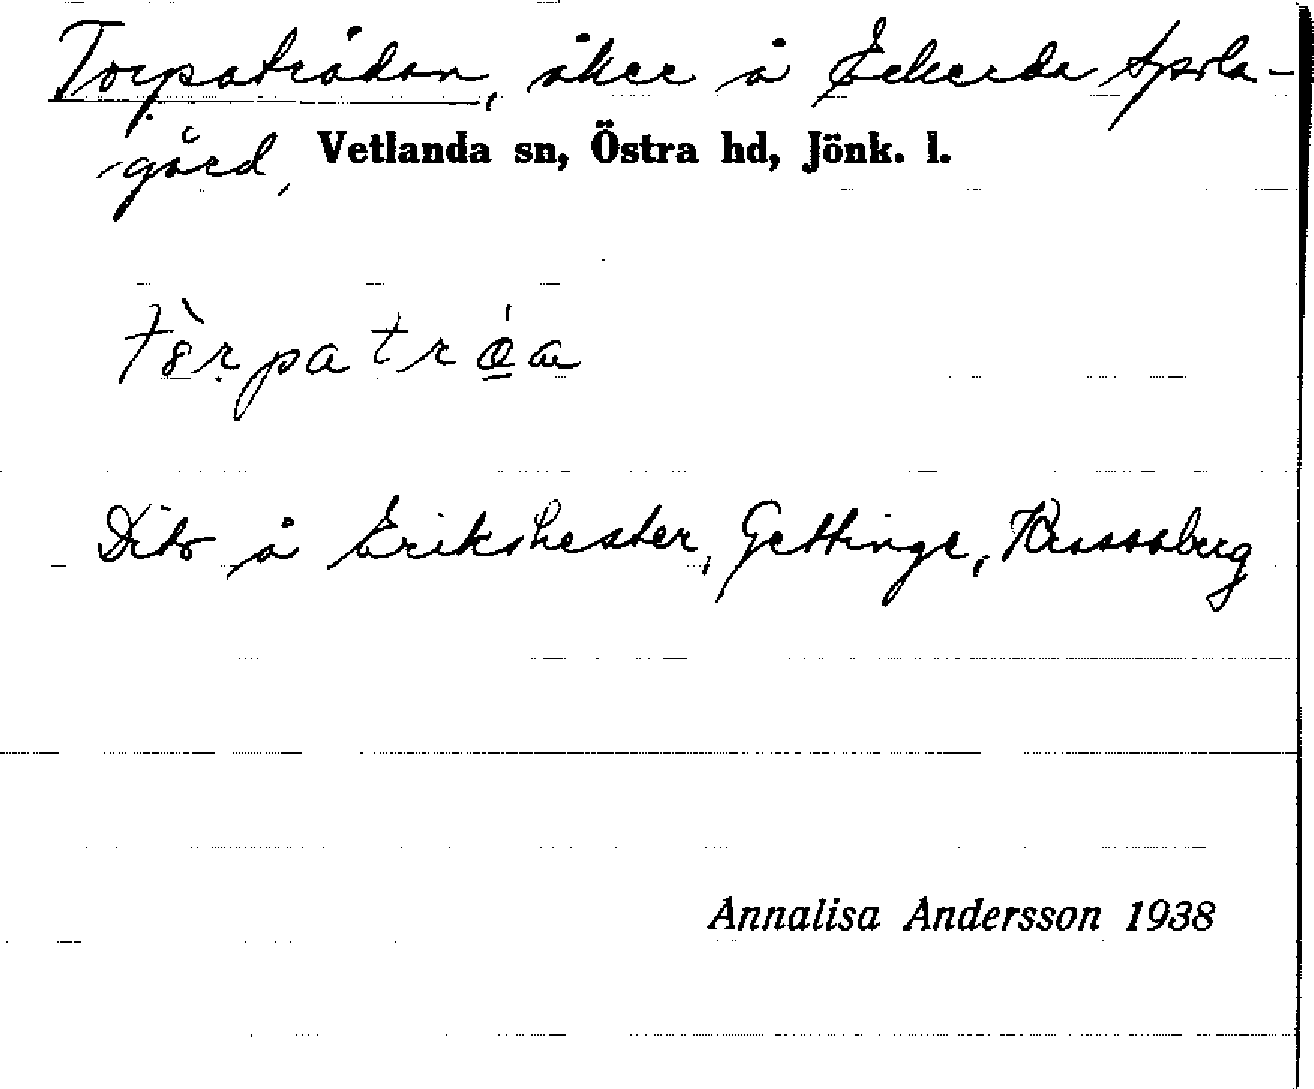 Torpatrådan, åker å Eckerda Spola-
gård, Vetlanda sn, Östra hd, Jönk. l.
Dito å Erikshester, Gettinge,
Annalisa Andersson 1938